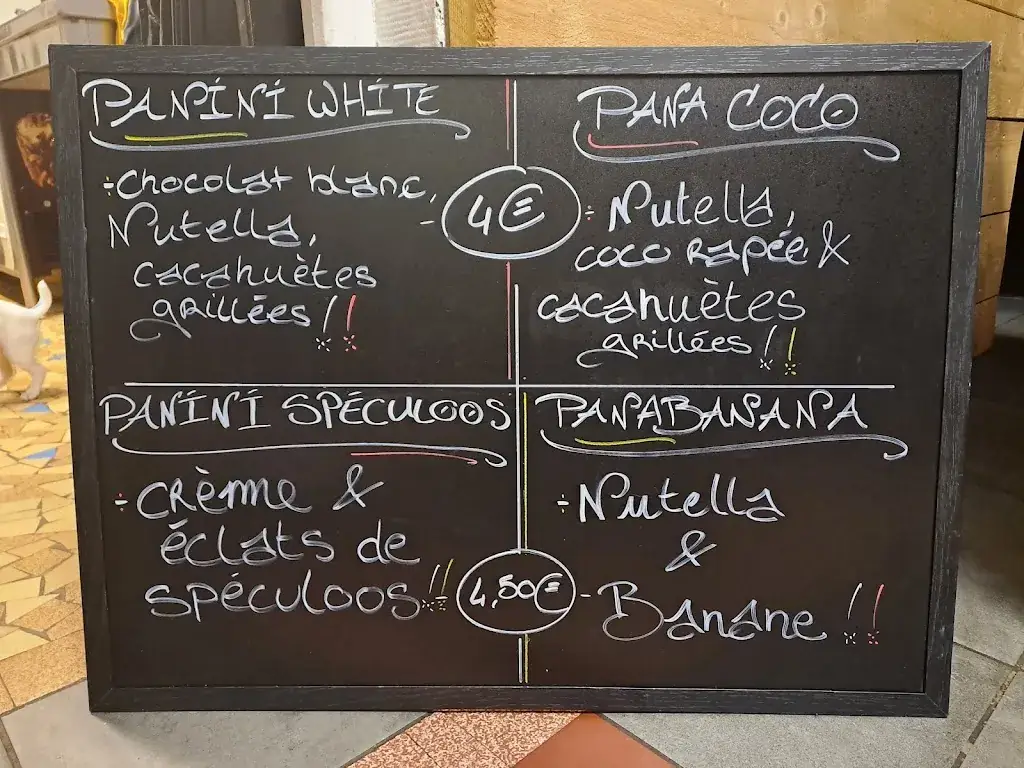 PANINI WHITE
÷chocolat blanc,
Nutella,
cacahuètes
grillées !!
4€
PANA COCO
÷ Nutella,
coco rapée &
cacahuètes
grillées !!
PANINI SPÉCULOOS
÷ crème &
éclats de
spéculoos !!
4,50€
PANABANANA
÷ Nutella
&
Banane !!